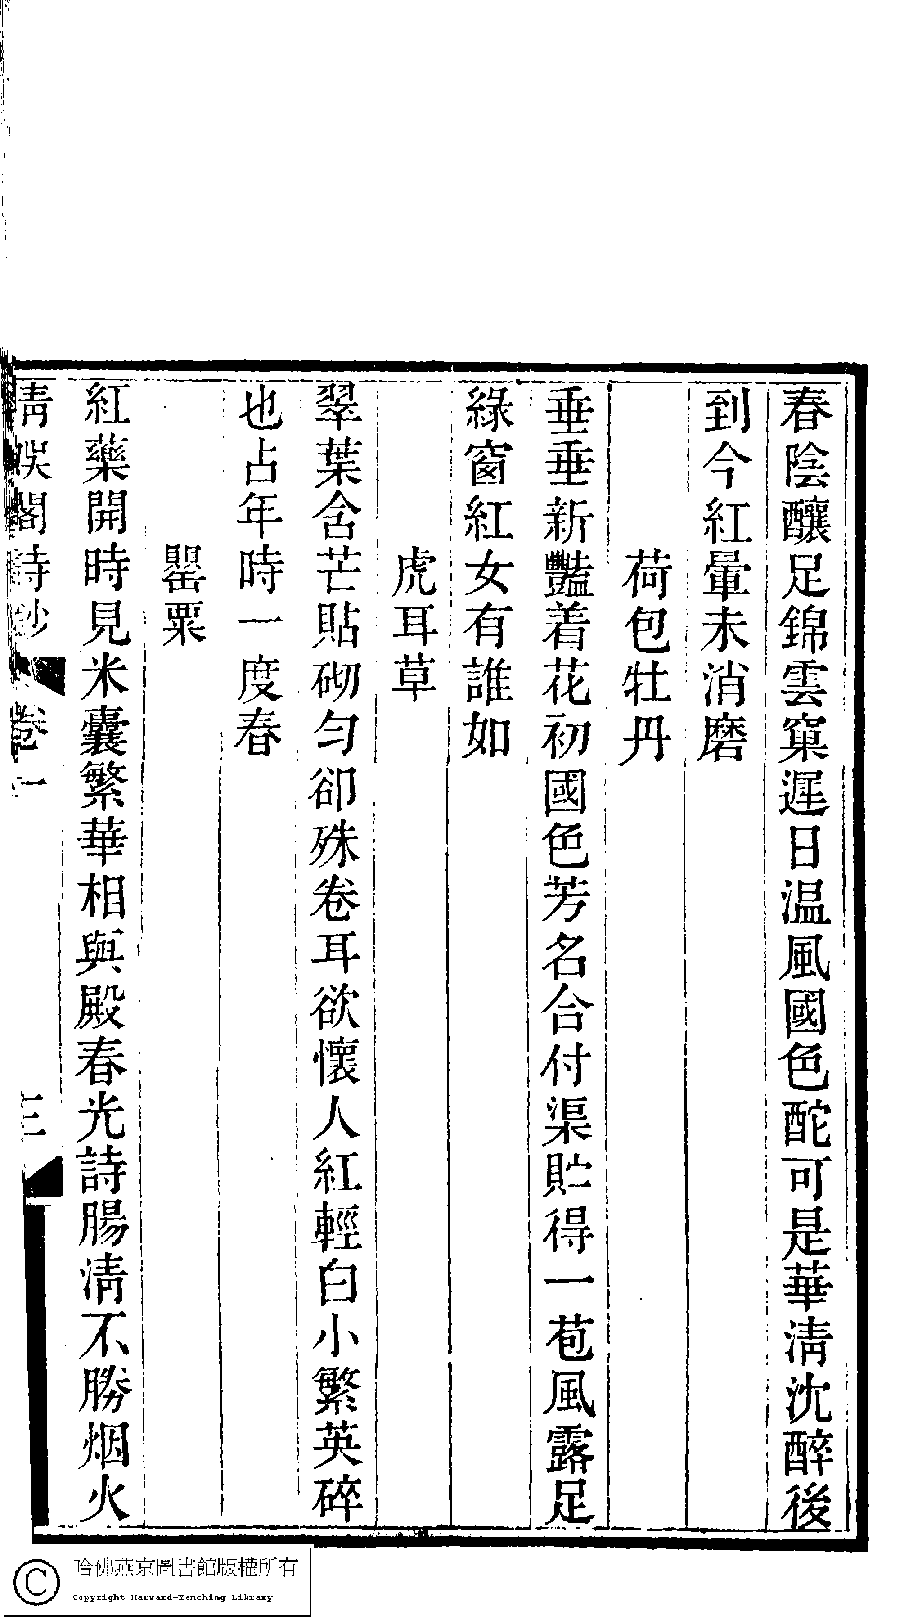 春陰釀足錦雲窠遲日温風國色酡可是華淸沈醉後
到今紅暈未消磨
荷包牡丹
垂垂新豔着花初國色芳名合付渠貯得一苞風露足
綠窗紅女有誰如
虎耳草
翠葉含芒貼砌勻卻殊卷耳欲懷人紅輕白小繁英碎
也占年時一度春
罌粟
紅藥開時見米囊繁華相與殿春光詩腸淸不勝烟火
淸娛閣詩鈔 卷一 三
哈佛燕京圖書館版權所有
Copyright Harvard-Yenching Library